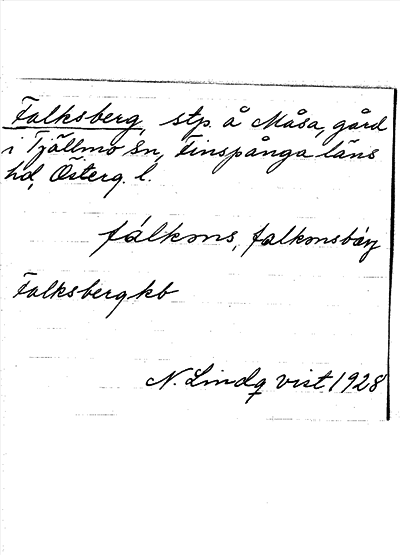 Falksberg, stp. å Måsa, gård
i Tjällmo sn, Finspånga läns
hd, Österg. l.
fálkɔns, falkɔnsbærj
Falksberg kb
N. Lindq vist 1928